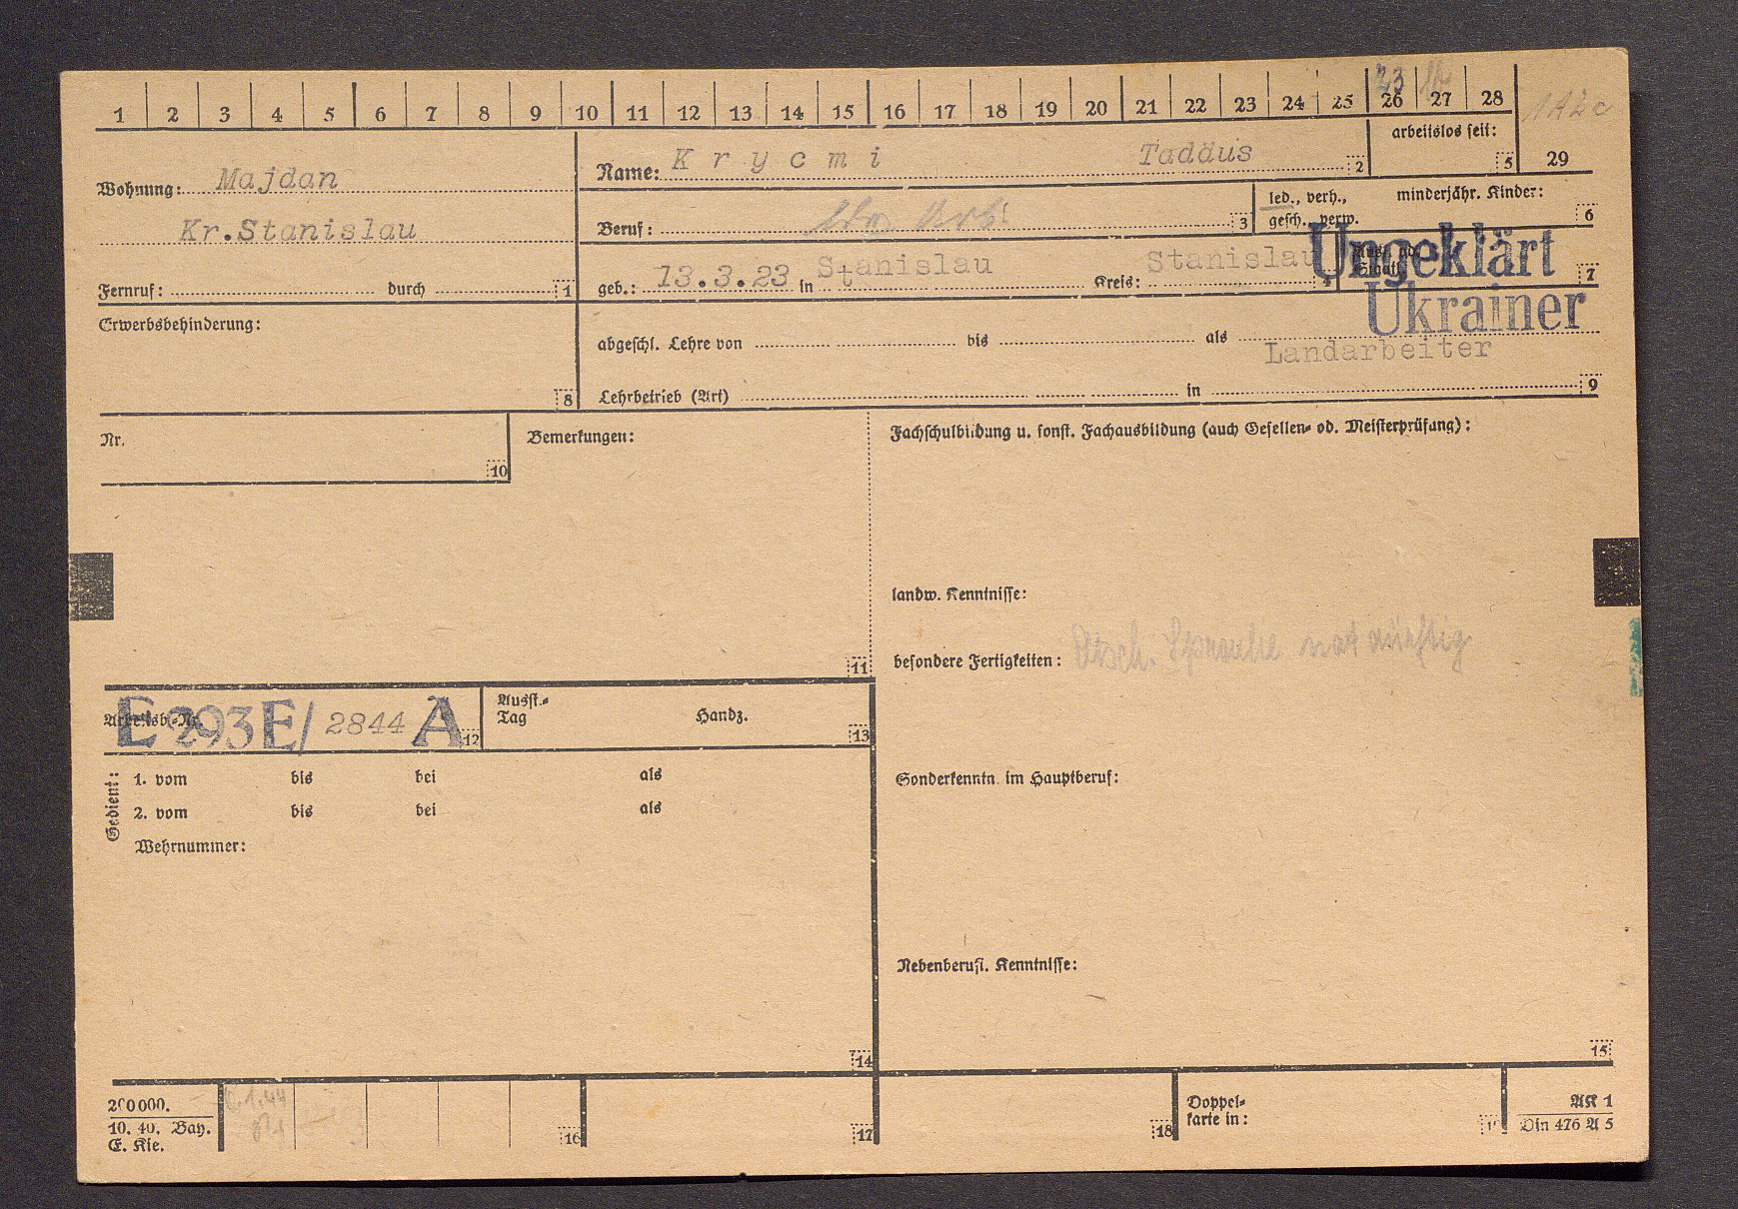 1 2 3 4 5 6 7 8 9 10 11 12 13 14 15 16 17 18 19 20 21 22 23 24 25 26 27 28
23
1A2c
29
Wohnung: Majdan
Kr.Stanislau
Fernruf: durch 1
Name: Krycmi Tadäus 2
arbeitslos seit: 5
Beruf: 3
led., verh., gesch., verw.
minderjähr. Kinder: 6
geb.: 13.3.23 in Stanislau Kreis: Stanislau 4
7
Ungeklärt
Ukrainer
Erwerbsbehinderung: 8
abgeschl. Lehre von bis als
Landarbeiter
Lehrbetrieb (Art) in 9
Nr. 10
Bemerkungen: 11
Fachschulbildung u. sonst. Fachausbildung (auch Gesellen- od. Meisterprüfung):
landw. Kenntnisse:
besondere Fertigkeiten: Dtsch. Sprache notdürftig
Arbeitsb.-Nr. E 293E/ 2844 A 12
Ausst.-
Tag Handz. 13
Gedient:
1. vom bis bei als
2. vom bis bei als
Wehrnummer:
14
Sonderkenntn. im Hauptberuf:
Nebenberufl. Kenntnisse:
15
200000.
10. 40. Bay.
E. Kie.
16
17
18
Doppel-
karte in:
AK 1
Din 476 A 5